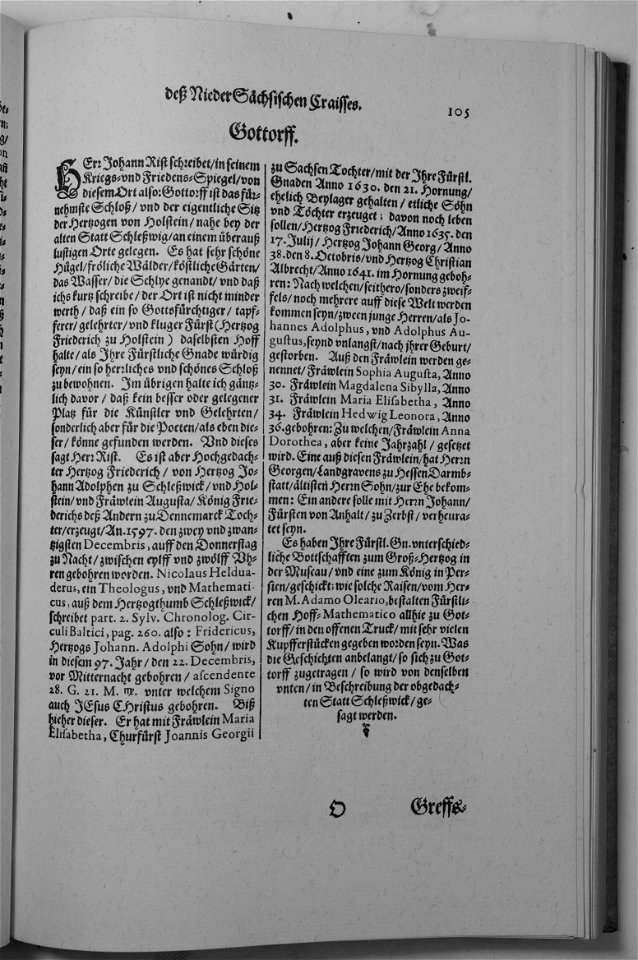 deß NiederSächsischen Craisses.
105
Gottorff.
HErꝛ Johann Rist schreibet/ in seinem
Kriegs- und Friedens-Spiegel/ von
diesem Ort also: Gottorff ist das für-
nehmste Schloß/ vnd der eigentliche Sitz
der Hertzogen von Holstein/ nahe bey der
alten Statt Schleßwig/ an einem überauß
lustigen Orte gelegen. Es hat sehr schöne
Hügel/ fröliche Wälder/ köstliche Gärten/
das Wasser/ die Schlye genandt/ vnd daß
ichs kurtz schreibe/ der Ort ist nicht minder
werth/ daß ein so Gottsfürchtiger/ tapf-
ferer/ gelehrter/ vnd kluger Fürst (Hertzog
Friederich zu Holstein) daselbsten Hoff
halte/ als Ihre Fürstliche Gnade würdig
seyn/ ein so herrliches vnd schönes Schloß
zu bewohnen. Im übrigen halte ich gäntz-
lich davor/ daß kein besser oder gelegener
Platz für die Künstler vnd Gelehrten/
sonderlich aber für die Poeten/ als eben die-
ser/ könne gefunden werden. Vnd dieses
sagt Herr Rist. Es ist aber Hochgedach-
ter Hertzog Friederich/ von Hertzog Jo-
hann Adolphen zu Schleßwick/ vnd Hol-
stein/ vnd Fräwlein Augusta/ König Frie-
derichs deß Andern zu Dennemarck Toch-
ter/ erzeugt/ An. 1597. den zwey vnd zwan-
tzigsten Decembris, auff den Donnerstag
zu Nacht/ zwischen eylff vnd zwölff Vh-
ren gebohren worden. Nicolaus Heldua-
derus, ein Theologus, vnd Mathemati-
cus, auß dem Hertzogthumb Schleßwick/
schreibet part. 2. Sylv. Chronolog. Cir-
culi Baltici, pag. 260. also: Fridericus,
Hertzogs Johann. Adolphi Sohn/ wird
in diesem 97. Jahr/ den 22. Decembris,
vor Mitternacht gebohren/ ascendente
28. G. 21. M. ♍. vnter welchem Signo
auch JEsus CHristus gebohren. Biß
hieher dieser. Er hat mit Fräwlein Maria
Elisabetha, Churfürst Joannis Georgii
zu Sachsen Tochter/ mit der Ihre Fürstl.
Gnaden Anno 1630. den 21. Hornung/
ehelich Beylager gehalten/ etliche Söhn
vnd Töchter erzeuget; davon noch leben
sollen/ Hertzog Friederich/ Anno 1635. den
17. Julij/ Hertzog Johann Georg/ Anno
38. den 8. Octobris, vnd Hertzog Christian
Albrecht/ Anno 1641. im Hornung geboh-
ren: Nach welchen/ seithero/ sonders zweif-
fels/ noch mehrere auff diese Welt werden
kommen seyn/ zween junge Herren/ als Jo-
hannes Adolphus, vnd Adolphus Au-
gustus, seynd vnlangst/ nach jhrer Geburt/
gestorben. Auß den Fräwlein werden ge-
nennet/ Fräwlein Sophia Augusta, Anno
30. Fräwlein Magdalena Sibylla, Anno
31. Fräwlein Maria Elisabetha, Anno
34. Fräwlein Hedwig Leonora, Anno
36. gebohren: Zu welchen/ Fräwlein Anna
Dorothea, aber keine Jahrzahl/ gesetzet
wird. Eine auß diesen Fräwlein/ hat Herrn
Georgen/ Landgravens zu Hessen Darmb-
statt/ ältisten Herrn Sohn/ zur Ehe bekom-
men: Ein andere solle mit Herrn Johann/
Fürsten von Anhalt/ zu Zerbst/ verheura-
tet seyn.
Es haben Ihre Fürstl. Gn. vnterschied-
liche Bottschafften zum Groß-Hertzog in
der Muscau/ vnd eine zum König in Per-
sien/ geschickt: wie solche Raisen/ vom Her-
ren M. Adamo Oleario, bestalten Fürstli-
chen Hoff-Mathematico allhie zu Got-
torff/ in den offenen Truck/ mit sehr vielen
Kupfferstücken gegeben worden seyn. Was
die Geschichten anbelangt/ so sich zu Got-
torff zugetragen/ so wird von denselben
vnten/ in Beschreibung der obgedach-
ten Statt Schleßwick/ ge-
sagt werden.
O
Greffs-